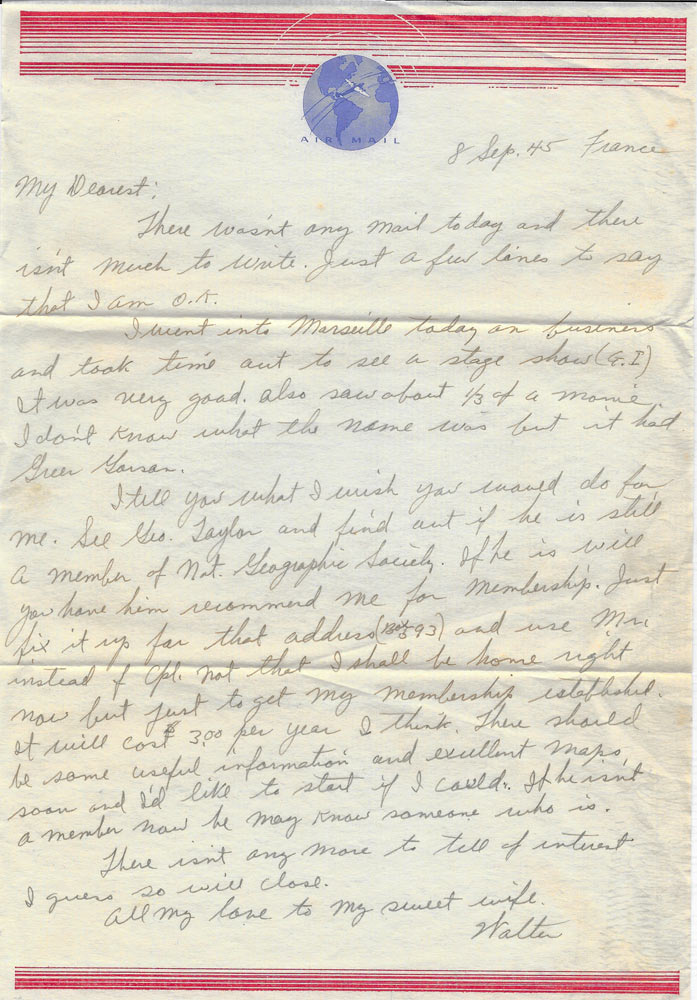 AIR MAIL
8 Sep. 45 France
My Dearest:
There wasn't any mail today and there
isn't much to write. Just a few lines to say
that I am O.K.
I went into Marseille today on business
and took time out to see a stage show (G.I)
It was very good. Also saw about 1/3 of a movie.
I don't know what the name was but it had
Greer Garson.
I tell you what I wish you would do for
me. See Geo. Taylor and find out if he is still
a member of Nat. Geographic Society. If he is will
you have him recommend me for membership. Just
fix it up for that address (Box 593) and use Mr.
instead of Cpl. Not that I shall be home right
now but just to get my membership established.
It will cost $3.00 per year I think. There should
be some useful information and exellent maps
soon and I'd like to start if I could. If he isn't
a member now he may know someone who is.
There isn't any more to tell of interest
I guess so will close.
All my love to my sweet wife.
Walter